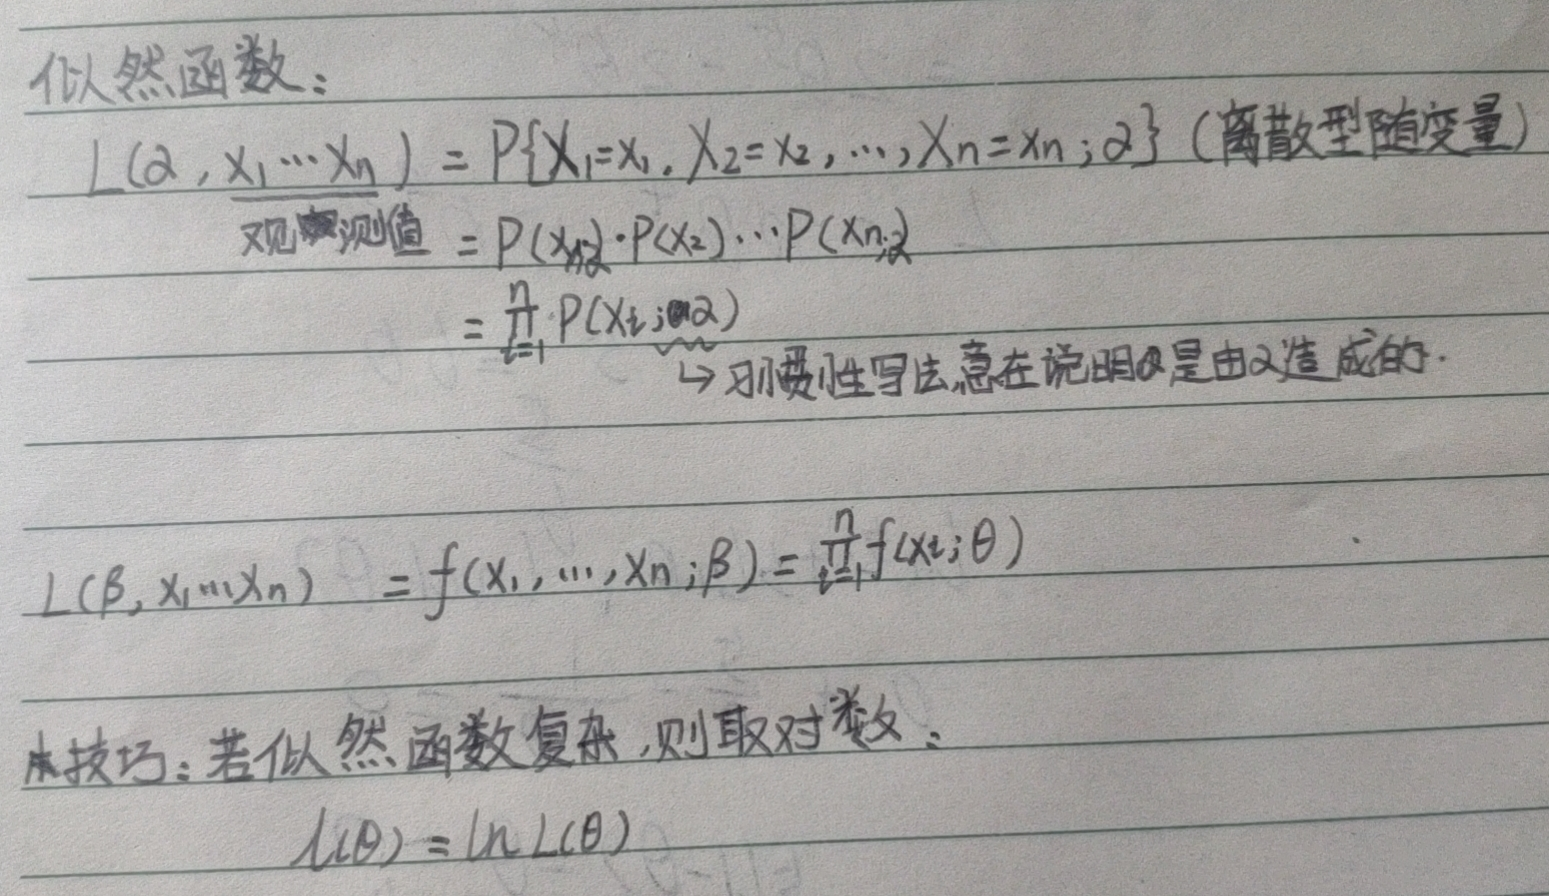 似然函数：
L(α, x₁…xₙ) = P{X₁=x₁, X₂=x₂, …, Xₙ=xₙ; α} (离散型随变量)
观测值 = P(x₁;α)·P(x₂)…P(xₙ;α
= ∏ᵢ₌₁ⁿ P(xᵢ; α)
↳ 习惯性写法,意在说明是由α造成的.
L(β, x₁…xₙ) = f(x₁, …, xₙ; β) = ∏ᵢ₌₁ⁿ f(xᵢ; θ)
技巧：若似然函数复杂,则取对数：
l(θ) = ln L(θ)